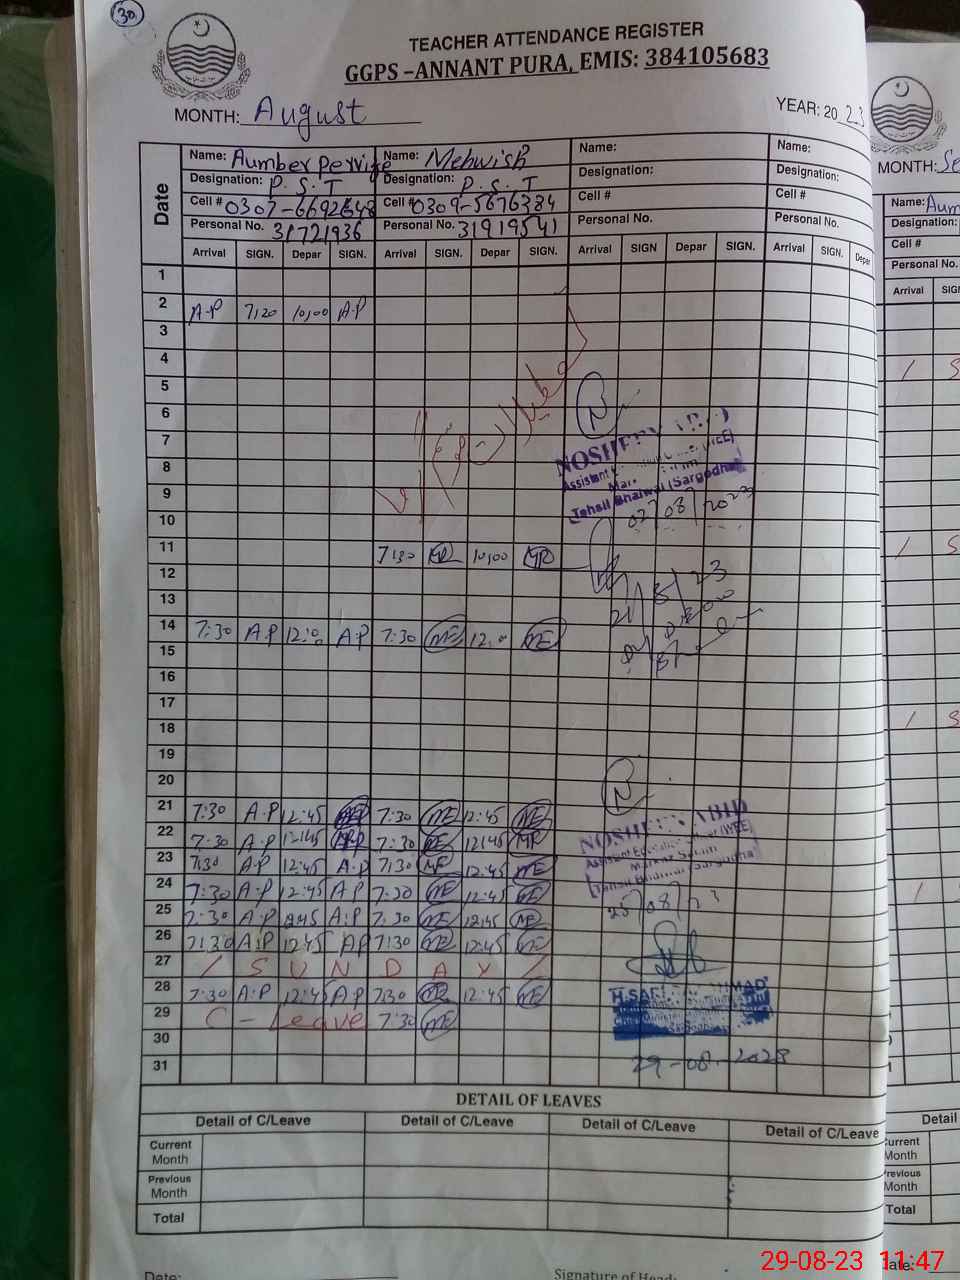 30
TEACHER ATTENDANCE REGISTER
GGPS –ANNANT PURA, EMIS: 384105683
MONTH: August YEAR: 2023
Date Name: Aumber pervize Name: Mehwish Name: Name:
Designation: P.S.T Designation: P.S.T Designation: Designation:
Cell # 0307-6692648 Cell # 0309-5676384 Cell # Cell #
Personal No. 31721936 Personal No. 31919541 Personal No. Personal No.
Arrival SIGN. Depar SIGN. Arrival SIGN. Depar SIGN. Arrival SIGN Depar SIGN. Arrival SIGN. Depar
1
2 A.P 7,20 10,00 A.P
3
4
5
6
7
8
9
10
11 7130 10,00
12
13
14 7:30 A.P 12:0 A.P 7:30 ME 12:0 ME
15
16
17
18
19
20
21 7:30 A.P 12:45 7:30 ME 12:45 ME
22 7:30 A.P 12:45 7:30 ME 12:45 MP
23 7:30 A.P 12:45 A.P 7:30 MF 12:45 ME
24 7:30 A.P 12:45 A.P 7:30 ME 12:45 ME
25 7:30 A.P 12:45 A.P 7:30 ME 12:45 ME
26 7:30 A.P 12:45 A.P 7:30 ME 12:45 ME
27 / S U N D A Y /
28 7:30 A.P 12:45 A.P 7:30 ME 12:45 ME
29 C - Leave 7:30 ME
30
31
NOSHEEN ABID
Assistant
Tehsil Bhalwal (Sargodha)
02/08/2023
21/8/23
NOSHEEN ABID
Assistant Education Officer (WEE)
Tehsil Bhalwal (Sargodha)
25/08/23
29-08-2023
DETAIL OF LEAVES
Detail of C/Leave Detail of C/Leave Detail of C/Leave Detail of C/Leave
Current Month
Previous Month
Total
Date: Signature of Head:
MONTH: Se
Name: Aum
Designation:
Cell #
Personal No.
Arrival SIGN
/ S
/ S
/ S
/ S
Detail
Current Month
Previous Month
Total
29-08-23 11:47